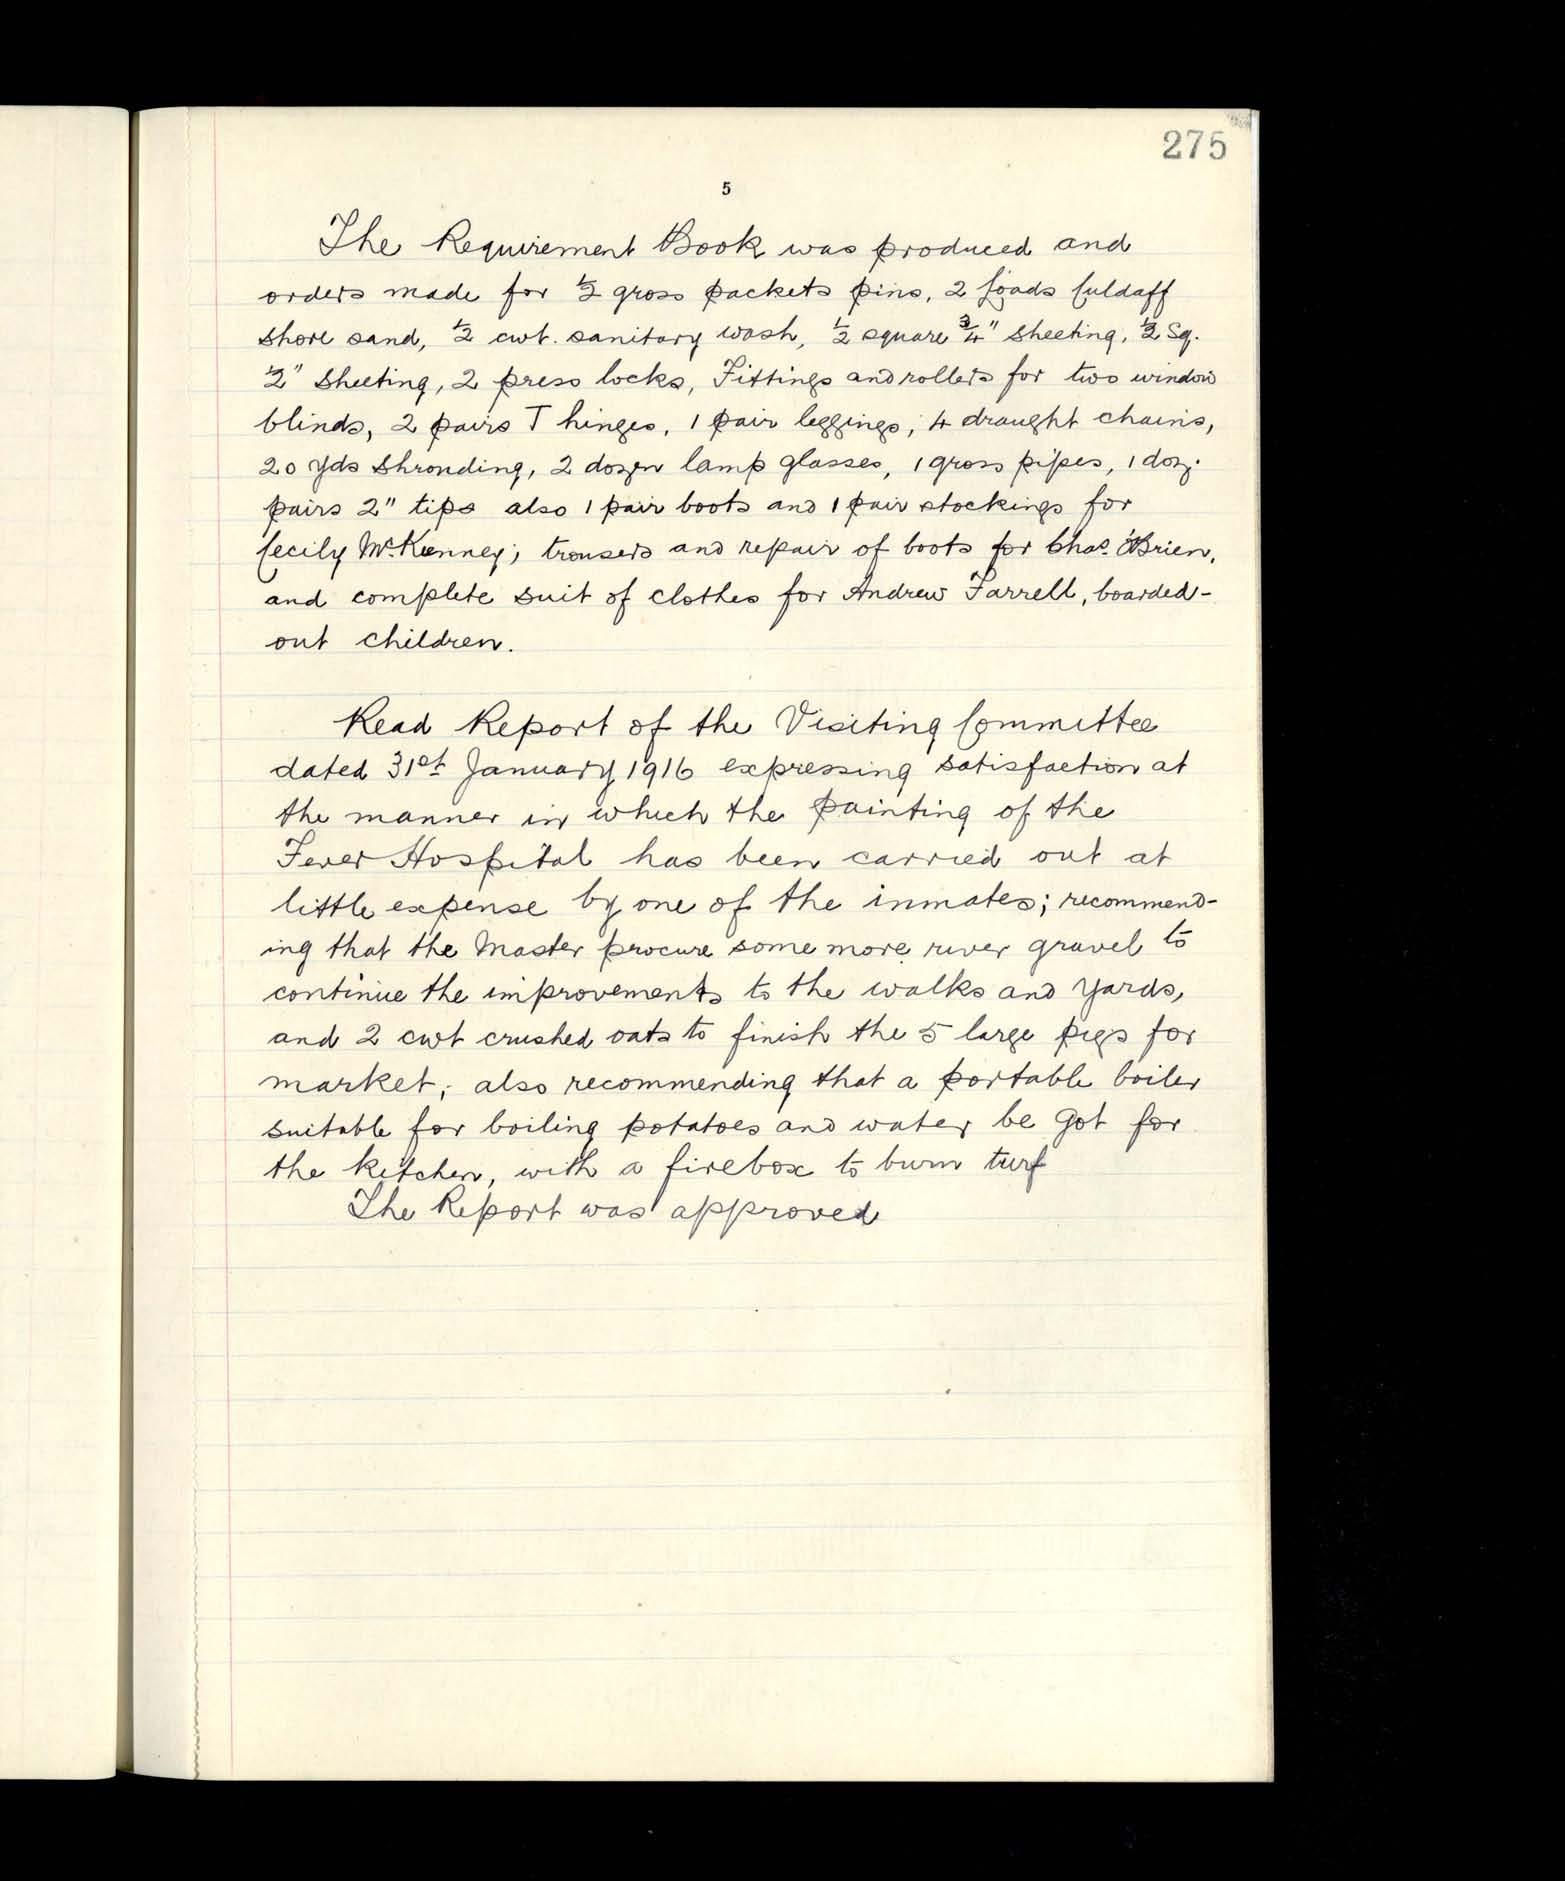 275
5
The Requirement Book was produced and
orders made for ½ gross packets pins, 2 loads Culdaff
shore sand, ½ cwt. sanitary wash, ½ square ¾" sheeting, ½ Sq.
½" Sheeting, 2 press locks, Fittings and rollers for two window
blinds, 2 pairs T hinges, 1 pair leggings, 4 draught chains,
20 yds Shrouding, 2 dozen lamp glasses, 1 gross pipes, 1 doz.
pairs 2" tips also 1 pair boots and 1 pair stockings for
Cecily McKenney; trousers and repair of boots for Chas. O'Brien,
and complete suit of clothes for Andrew Farrell, boarded-
out children.
Read Report of the Visiting Committee
dated 31st January 1916 expressing satisfaction at
the manner in which the painting of the
Fever Hospital has been carried out at
little expense by one of the inmates; recommend-
ing that the Master procure some more river gravel to
continue the improvements to the walks and yards,
and 2 cwt crushed oats to finish the 5 large pigs for
market; also recommending that a portable boiler
suitable for boiling potatoes and water be got for
the kitchen, with a firebox to burn turf
The Report was approved